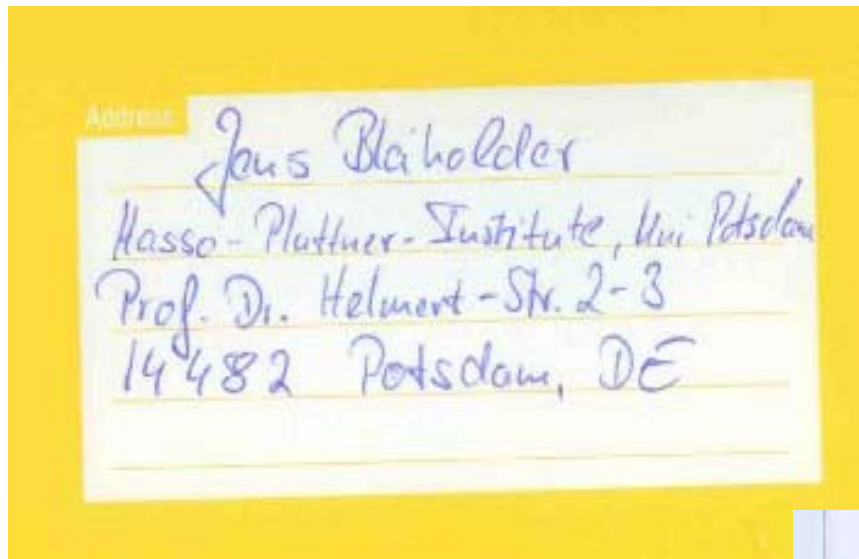 Address
Jens Bleiholder
Hasso-Plattner-Institute, Uni Potsdam
Prof. Dr. Helmert-Str. 2-3
14482 Potsdam, DE